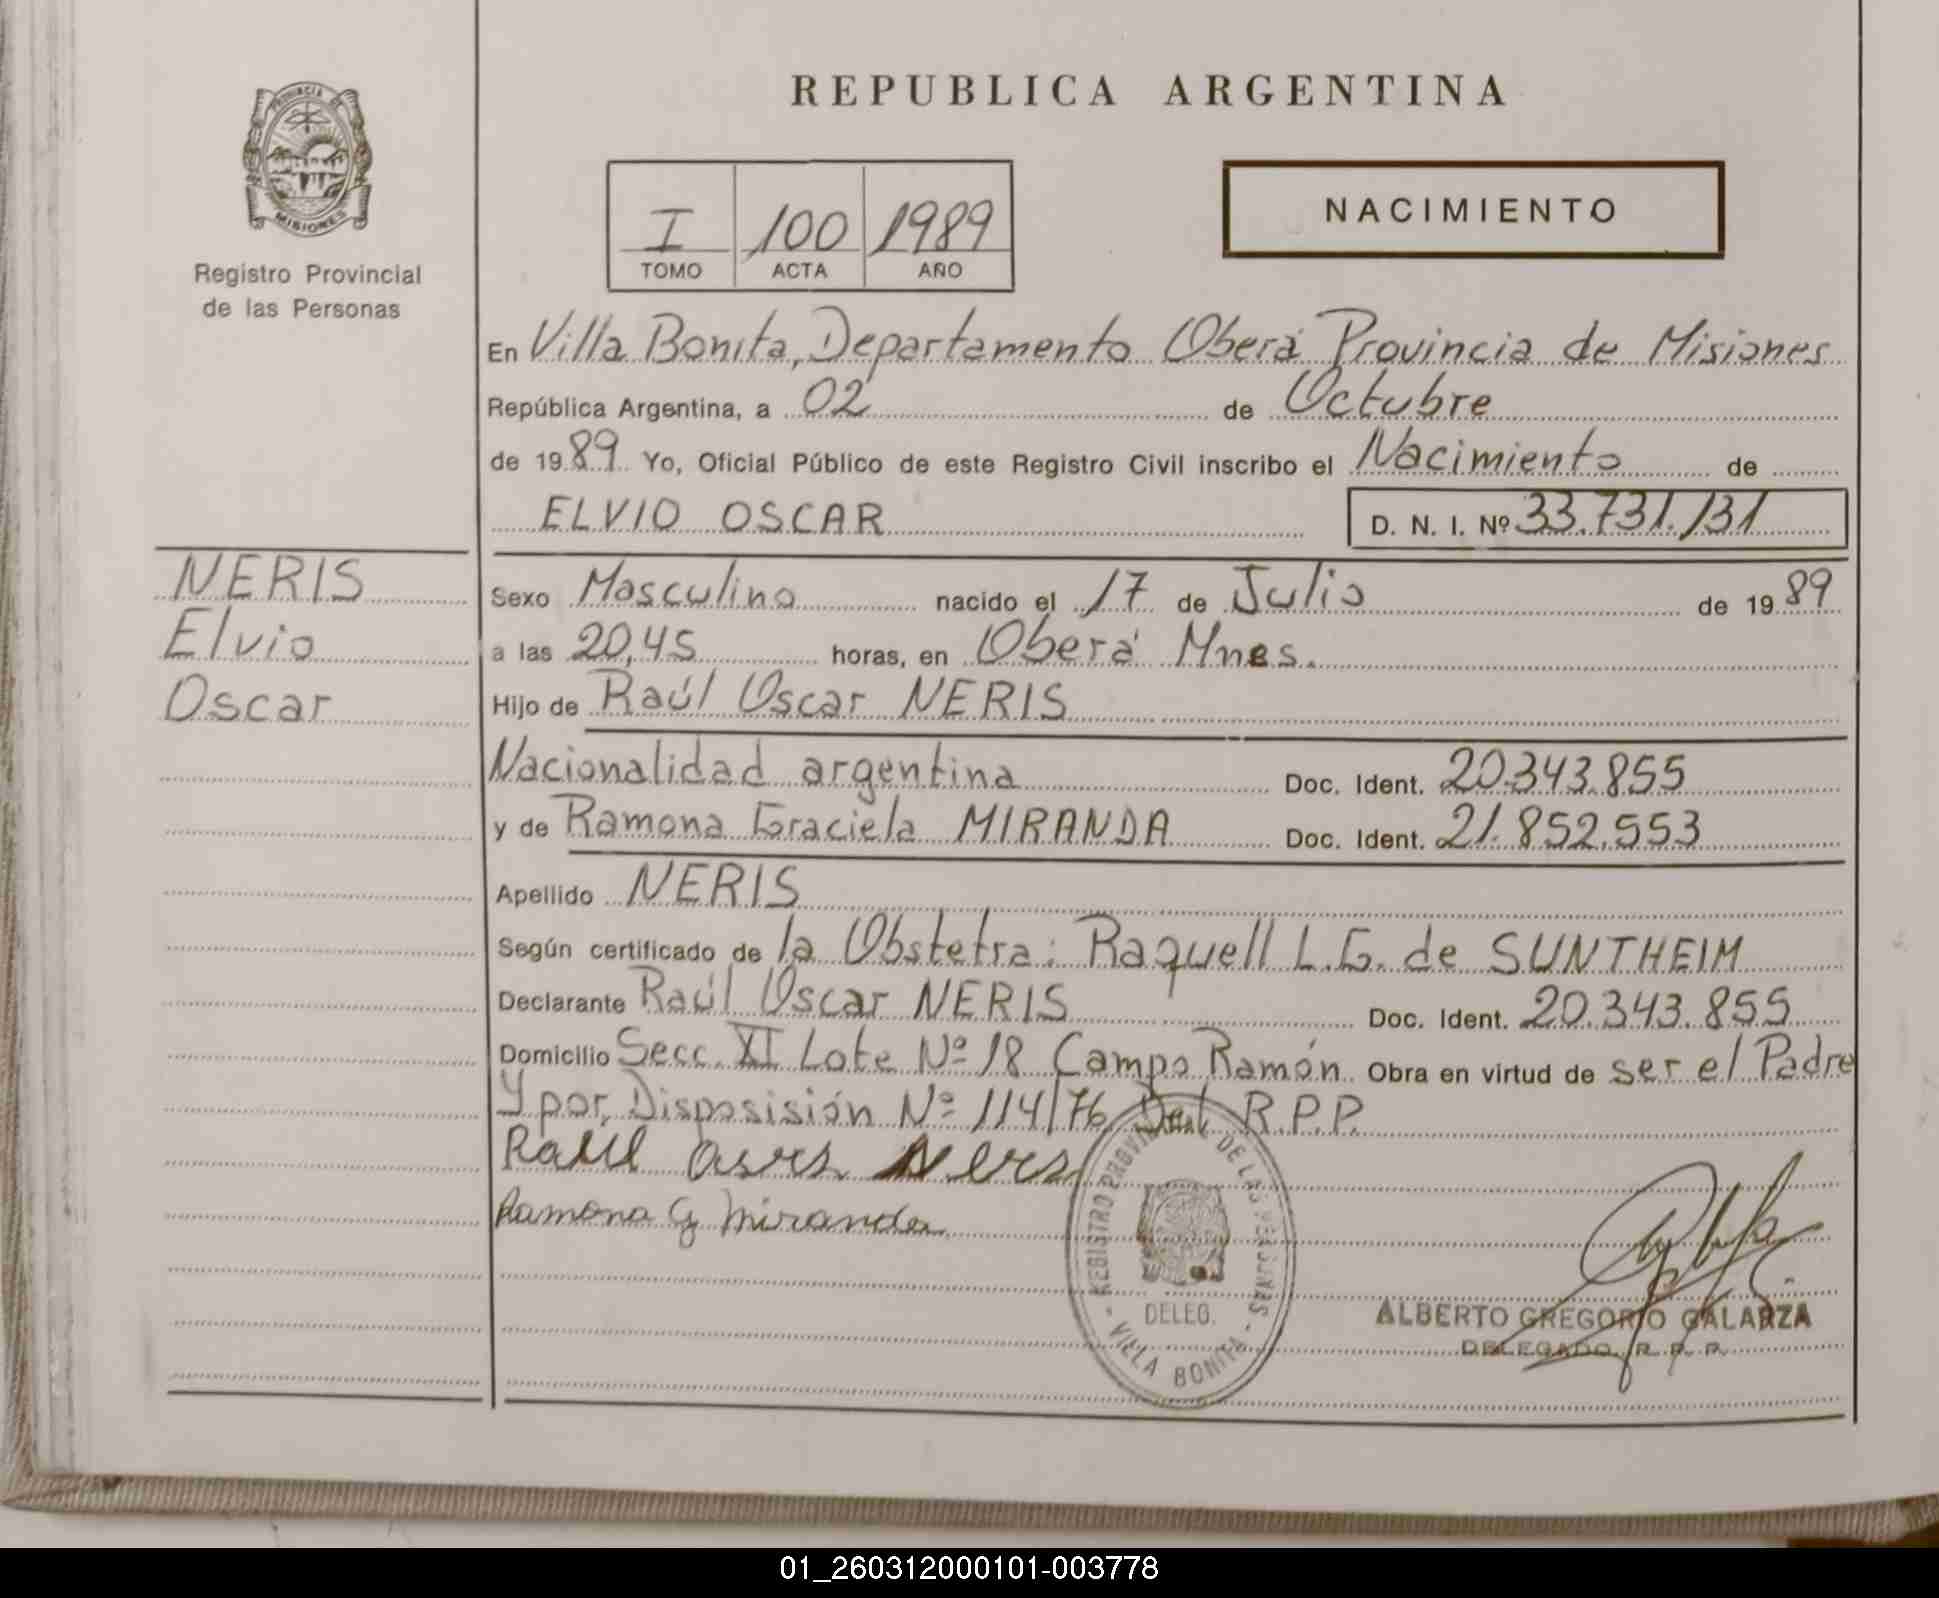 REPUBLICA ARGENTINA
PROVINCIA DE
MISIONES
Registro Provincial
de las Personas
I 100 1989
TOMO ACTA AÑO
NACIMIENTO
En Villa Bonita, Departamento Oberá Provincia de Misiones
República Argentina, a 02 de Octubre
de 1989 Yo, Oficial Público de este Registro Civil inscribo el Nacimiento de
ELVIO OSCAR D. N. I. Nº 33.731.131
NERIS
Elvio
Oscar
Sexo Masculino nacido el 17 de Julio de 1989
a las 20,45 horas, en Oberá Mnes.
Hijo de Raúl Oscar NERIS
Nacionalidad argentina Doc. Ident. 20.343.855
y de Ramona Graciela MIRANDA Doc. Ident. 21.852.553
Apellido NERIS
Según certificado de la Obstetra: Raquell L.G. de SUNTHEIM
Declarante Raúl Oscar NERIS Doc. Ident. 20.343.855
Domicilio Secc. XI Lote Nº 18 Campo Ramón Obra en virtud de ser el Padre
Y por Disposisión Nº 114/76 Del R.P.P.
Raul
Ramona G Miranda
REGISTRO PROVINCIAL DE LAS PERSONAS
DELEG.
- VILLA BONITA -
ALBERTO GREGORIO GALARZA
DELEGADO R. P. P.
01_260312000101-003778